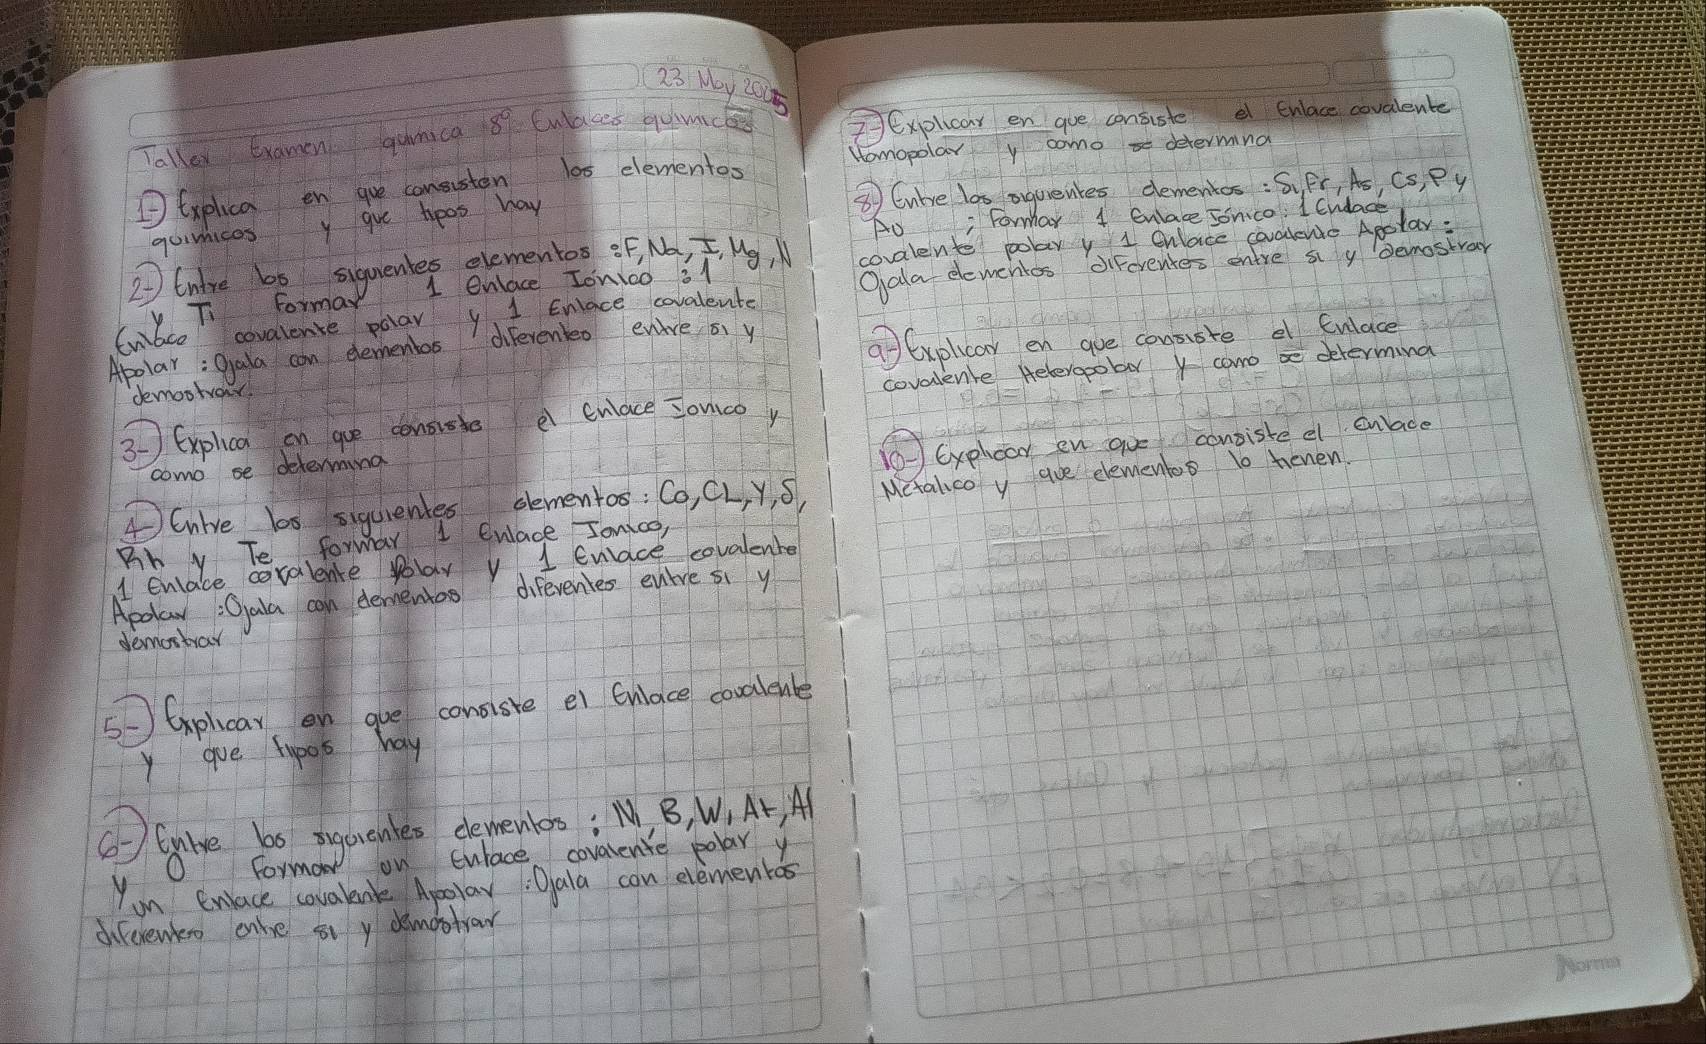 23 May 2025
Taller Examen quimica 8° Enlaces quimicos
1-) Explica en que consisten los elementos
quimicos y que tipos hay
2-) Entre los siguientes elementos : F, Na, I, Mg, N
y Ti Formar 1 enlace Iónico : 1
Enlace covalente polar y 1 Enlace covalente
Apolar : Ojala con elementos diferentes entre si y
demostrar.
3-) Explica en que consiste el enlace Ionico y
como se determina
4-) Entre los siguientes elementos : Co, CL, Y, S,
Rh y Te formar 1 Enlace Ionico,
1 Enlace covalente Polar y 1 Enlace covalente
Apolar : Ojala con elementos diferentes entre si y
demostrar
5-) Explicar en que consiste el Enlace covalente
y que tipos hay
6-) Entre los siguientes elementos : Ni, B, W, At, Al
y O Formar un Enlace covalente polar y
un Enlace covalente Apolar : Ojala con elementos
diferentes entre si y demostrar
7-) Explicar en que consiste el Enlace covalente
Homopolar y como se determina
8-) Entre los siguientes elementos : Si, Fr, As, Cs, P y
Au ; Formar 1 enlace Iónico, 1 Enlace
covalente polar y 1 enlace covalente Apolar :
Ojala elementos diferentes entre si y demostrar
9-) Explicar en que consiste el Enlace
covalente Heteropolar y como se determina
10-) Explicar en que consiste el enlace
Metalico y que elementos lo tienen.
Norma